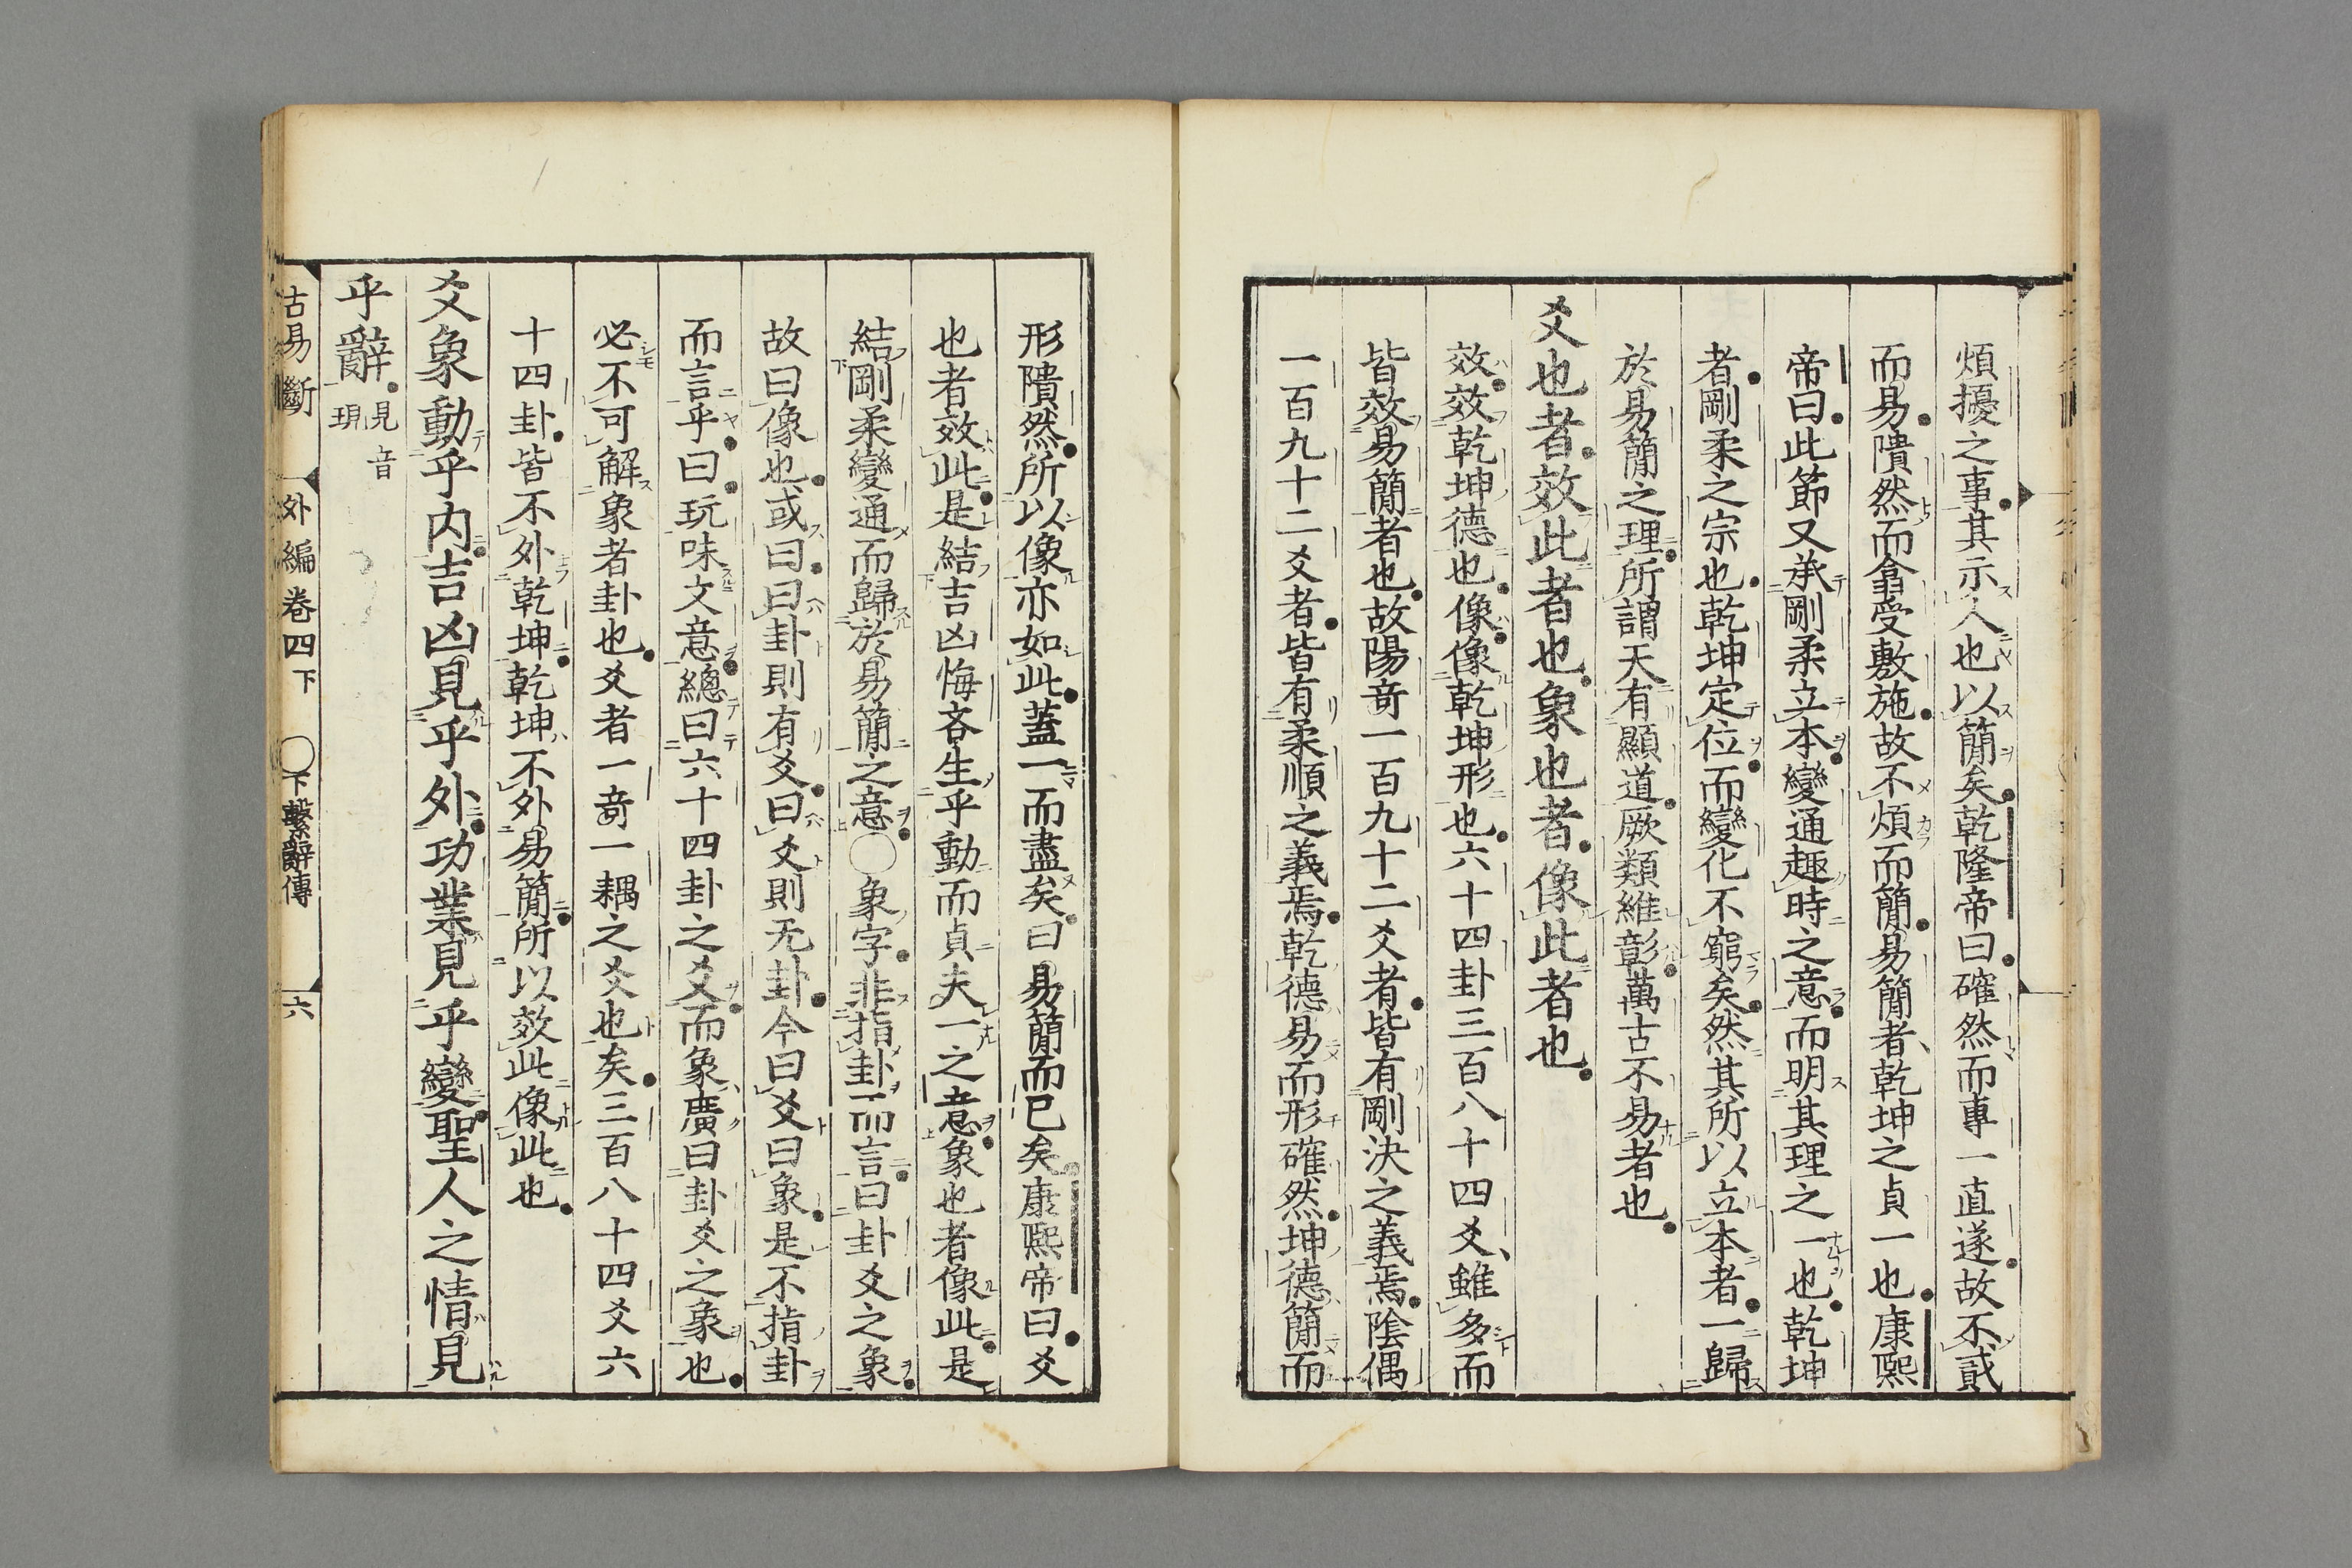 煩擾之事其示人也以簡矣乾隆帝曰確然而專一直遂故不貳
而易隤然而翕受敷施故不煩而簡易簡者乾坤之貞一也康熙
帝曰此節又承剛柔立本變通趣時之意而明其理之一也乾坤
者剛柔之宗也乾坤定位而變化不窮矣然其所以立本者一歸
於易簡之理所謂天有顯道厥類維彰萬古不易者也
爻也者效此者也象也者像此者也
效效乾坤德也像像乾坤形也六十四卦三百八十四爻雖多而
皆效易簡者也故陽竒一百九十二爻者皆有剛決之義焉陰偶
一百九十二爻者皆有柔順之義焉乾德易而形確然坤德簡而
形隤然所以像亦如此蓋一而盡矣曰易簡而已矣康熙帝曰爻
也者效此是結吉凶悔吝生乎動而貞夫一之意象也者像此是
結剛柔變通而歸於易簡之意〇象字非指卦而言曰卦爻之象
故曰像也或曰曰卦則有爻曰爻則无卦今曰爻曰象是不指卦
而言乎曰玩味文意總曰六十四卦之爻而象廣曰卦爻之象也
必不可解象者卦也爻者一竒一耦之爻也矣三百八十四爻六
十四卦皆不外乾坤乾坤不外易簡所以效此像此也
爻象動乎内吉凶見乎外功業見乎變聖人之情見
乎辭見音現
古易斷 外編卷四下 〇下繫辭傳 六